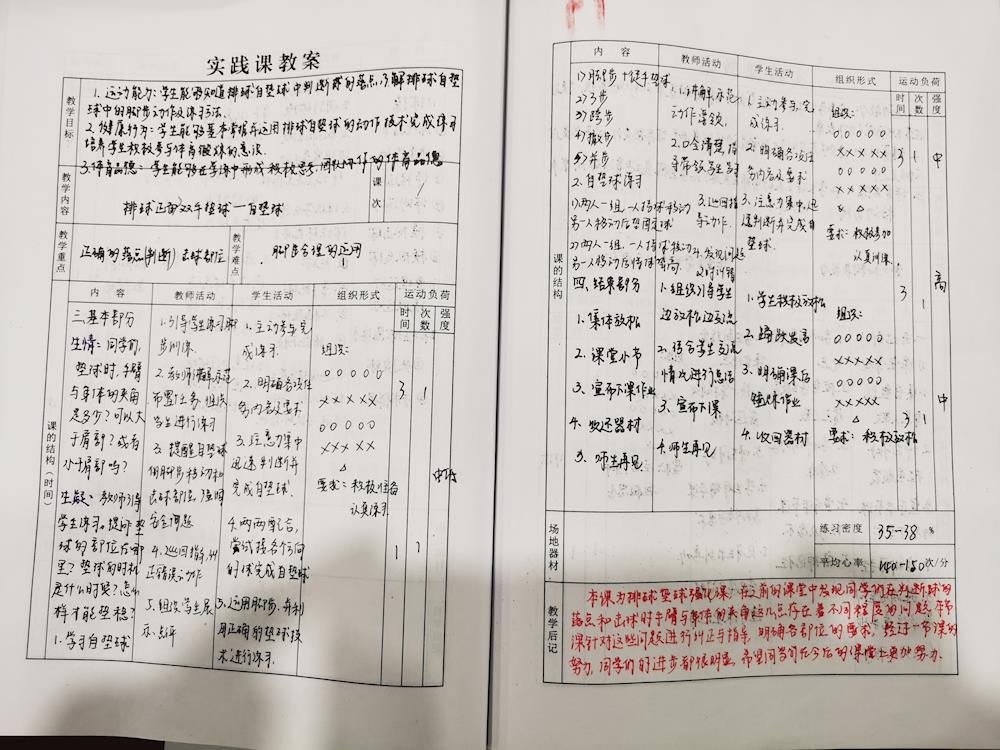 实践课教案
教学目标
1. 运动能力:学生能够知道排球自垫球中判断球的落点,了解排球自垫
球中的脚步动作及练习方法。
2. 健康行为:学生能够基本掌握并运用排球自垫球的动作技术完成练习
培养学生积极参与体育锻炼的意识。
3. 体育品德:学生能够在学练中形成积极思考,团队协作的体育品德
教学内容
排球正面双手垫球—自垫球
课次
教学重点
正确的落点(判断) 击球部位
教学难点
脚步合理的运用
课的结构(时间)
内 容 教师活动 学生活动 组织形式 运动负荷
时间 次数 强度
三.基本部分
生情:同学们,
垫球时,手臂
与身体的夹角
是多少?可以大
于肩部?或者
小于肩部吗?
生疑:教师引导
学生练习。提问垫
球的部位在哪
里?垫球的时机
是什么时候?怎么
样才能垫稳?
1. 学习自垫球
1. 引导学生练习脚
步训练
2. 教师讲解示范
布置任务,组织
学生进行练习
3. 提醒自垫球
时脚步移动和
击球部位,强调
安全问题
4. 巡回指导,纠
正错误动作
5. 组织学生展
示、点评
1. 主动参与,完
成练习.
2. 明确各项任
务内容及要求
3. 注意力集中
迅速判断并
完成自垫球.
4. 两两配合,
尝试接各个方向
的球完成自垫球
5. 运用脚步,并利
用正确的垫球技
术进行练习.
组织:
○○○○○
×××××
○○○○○
×××××
△
要求:积极准备
认真练习.
3 1
1 1
中
课的结构
内 容 教师活动 学生活动 组织形式 运动负荷
时间 次数 强度
1) 脚步+徒手垫球
2) 跨步
3) 跨步
4) 撤步
5) 并步
2. 自垫球练习
1) 两人一组,一人抛球移动
另一人移动后垫固定球
2) 两人一组,一人抛球移动
另一人移动后传球垫高.
四. 结束部分
1. 集体放松
2. 课堂小节
3. 宣布下课作业
4. 收还器材
5. 师生再见
1. 讲解、示范
动作要领
2. 口令清楚,指
导带领学生学习
3. 巡回指
导动作.
4. 发现问题
及时纠错
1. 组织引导学生
边放松边交流
2. 结合学生交流
情况进行总结
3. 宣布下课
4. 师生再见
1. 主动参与,完
成练习.
2. 明确各项任
务内容及要求
3. 注意力集中,迅
速判断并完成自
垫球.
1. 学生积极放松
2. 踊跃发言
3. 明确课后
锻炼作业
4. 收回器材
组织:
○○○○○
×××××
○○○○○
×××××
△
要求:积极参加
认真训练.
组织:
○○○○○
×××××
○○○○○
×××××
△
要求:积极放松
3 1 中
3 1 高
3 1 中
场地器材
练习密度 35-38 %
平均心率 140-150 次/分
教学后记
本课为排球垫球强化课,在之前的课堂中发现同学们在判断球的
落点和击球时手臂与身体的夹角这几点存在着不同程度的问题.本节
课针对这些问题进行纠正与指导,明确各部位的要求,经过一节课的
努力,同学们的进步都很明显,希望同学们在今后的课堂上更加努力.